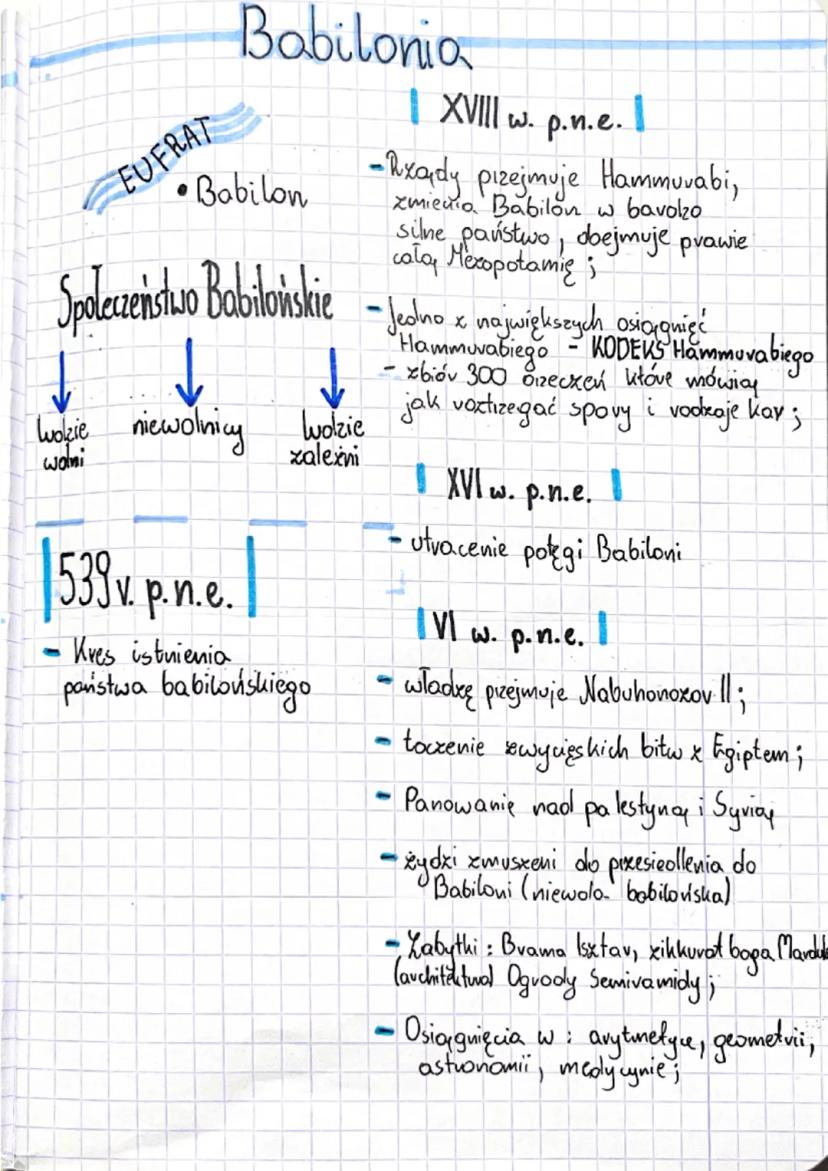 Babilonia
EUFRAT
• Babilon
Społeczeństwo Babilońskie
ludzie
wolni
niewolnicy
ludzie
zależni
539 r. p.n.e.
- Kres istnienia
państwa babilońskiego
XVIII w. p.n.e.
- Rządy przejmuje Hammurabi,
zmienia Babilon w bardzo
silne państwo, obejmuje prawie
całą Mezopotamię ;
- Jedno z największych osiągnięć
Hammurabiego - KODEKS Hammurabiego
- zbiór 300 orzeczeń które mówią
jak roztrzegać spory i rodzaje kar ;
XVI w. p.n.e.
- utracenie potęgi Babiloni
VI w. p.n.e.
- władzę przejmuje Nabuhonozor II ;
- toczenie zwycięskich bitw z Egiptem ;
- Panowanie nad palestyną i Syrią
- żydzi zmuszeni do przesiedlenia do
Babiloni (niewola babilońska)
- Zabytki : Brama Isztar, zikkurat boga Marduk
(architektura) Ogrody Semiramidy ;
- Osiągnięcia w : arytmetyce, geometrii,
astronomii, medycynie ;